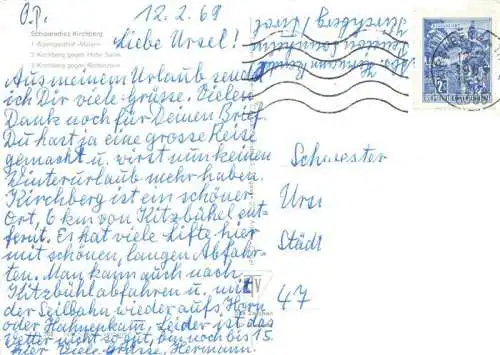 O.P.
12.2.69
Schiparadies Kirchberg
1 Alpengasthof »Maier«
2 Kirchberg gegen Hohe Salve
3 Kirchberg gegen
Liebe Ursel!
Aus meinem Urlaub sende
ich Dir viele Grüsse. Vielen
Dank noch für Deinen Brief.
Du hast ja eine grosse Reise
gemacht u. wirst nun keinen
Winterurlaub mehr haben.
Kirchberg ist ein schöner
Ort, 6 km von Kitzbühel ent-
fernt. Es hat viele Lifte hier
mit schönen, langen Abfahr-
ten. Man kann auch nach
Kitzbühl abfahren u. mit
der Seilbahn wieder aufs Horn
oder Hahnenkamm. Leider ist das
Wetter nicht so gut, bin noch bis 15.
hier. Viele Grüsse, Hermann.
Abs. Hermann
Pension Sonnheim
Kirchberg Tirol
Schwester
Urs
Städt
47